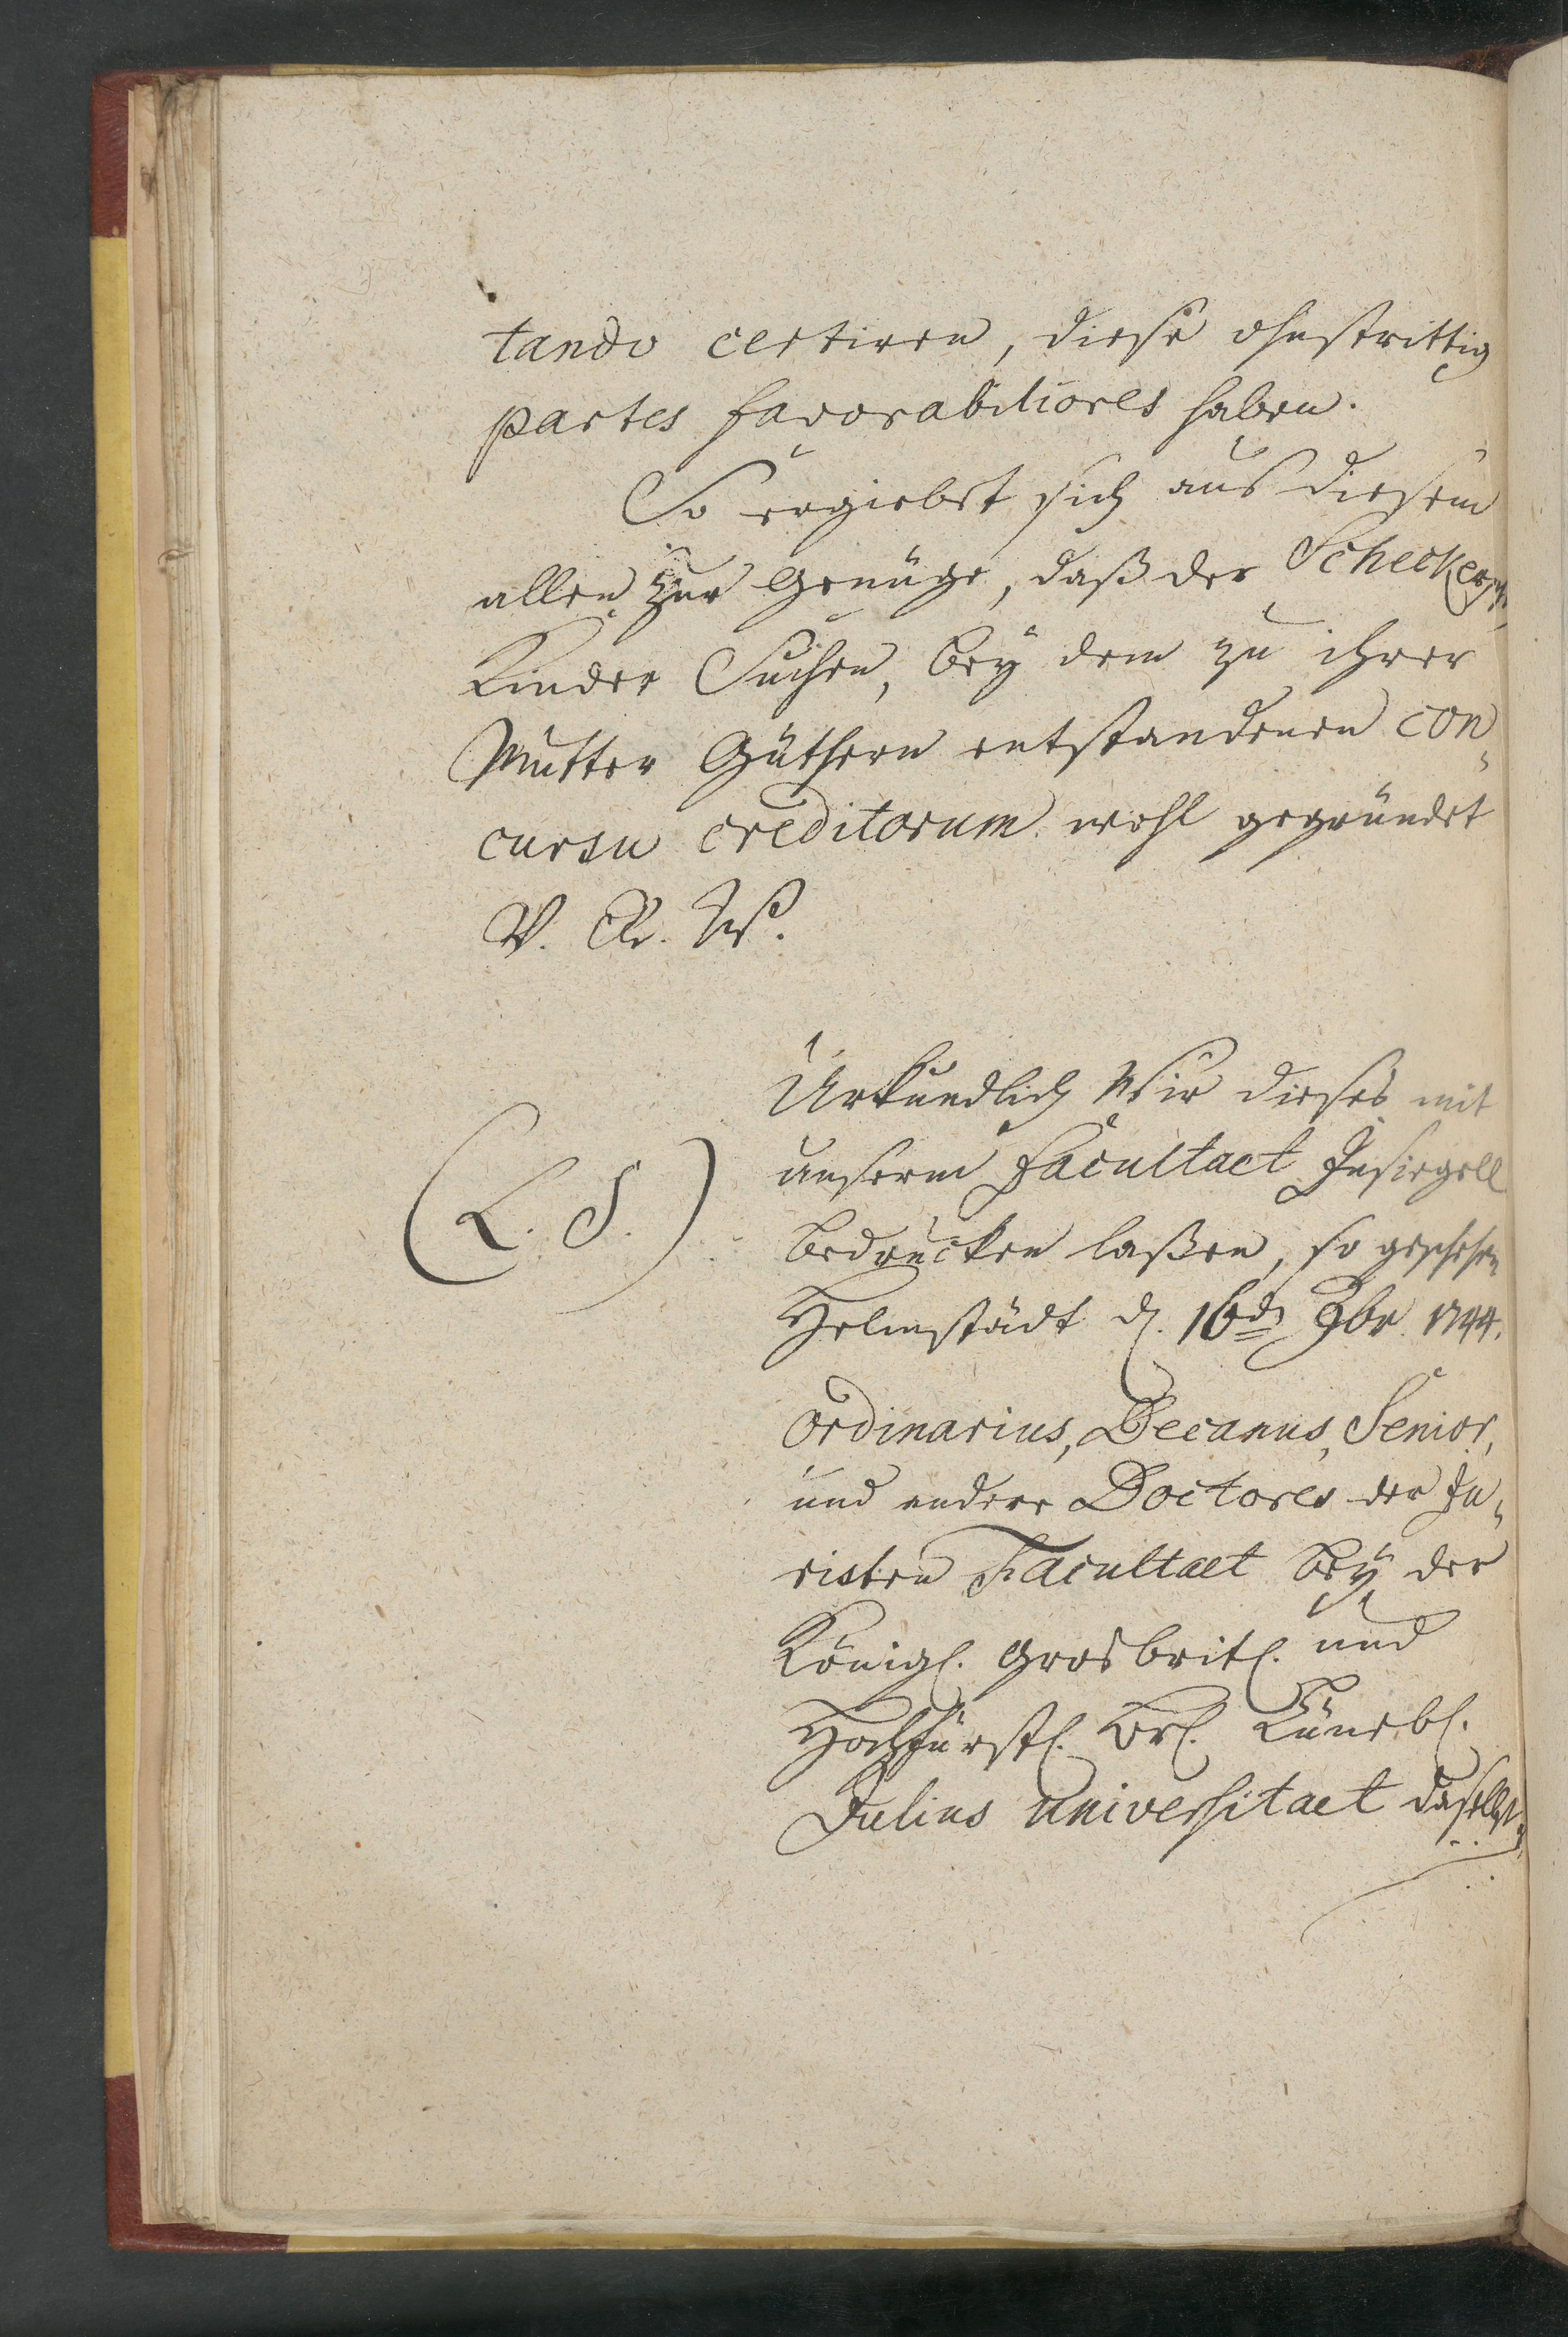 tando certiren, diese ohnstrittig
partes favorabiliores haben.
So ergiebet sich aus diesem
allen zur Genüge, daß der Schecker
Kinder Suchen, bey dem zu ihrer
Mutter Güthern entstandenen con-
cursu creditorum wohl gegründet
V. R. W.
Urkundlich Wir dieses mit
unserm Facultaet Insiegell
(L. S.)
bedrucken laßen, so geschehen
Helmstädt d. 16ten 9br 1744.
Ordinarius, Decanus, Senior,
und andere Doctores der Ju-
risten Facultaet bey der
Königl. Grosbritl. und
Hochfürstl. Brl. Lünebl.
Julius Universitaet daselbst.